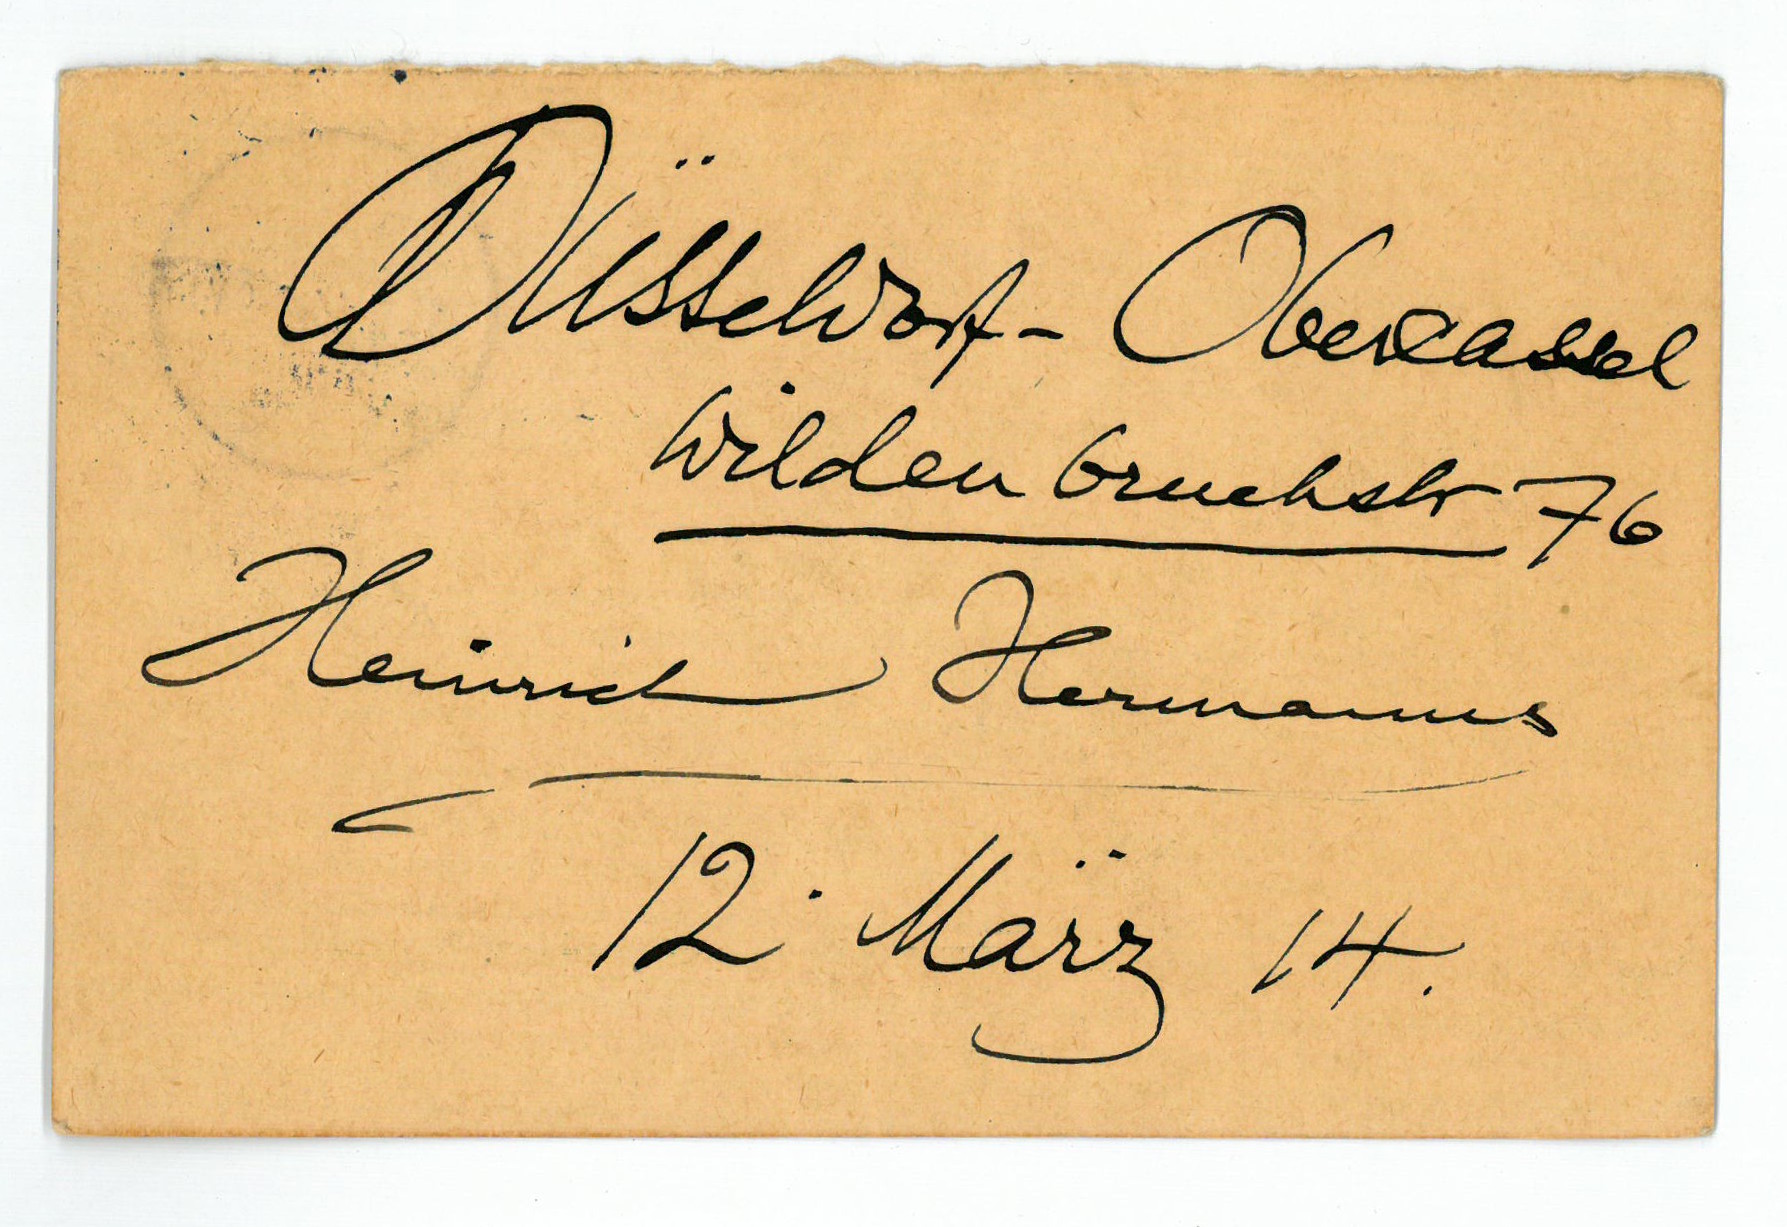 Düsseldorf-Obercassel
Wildenbruchstr 76
Heinrich Hermanns
12. März 14.